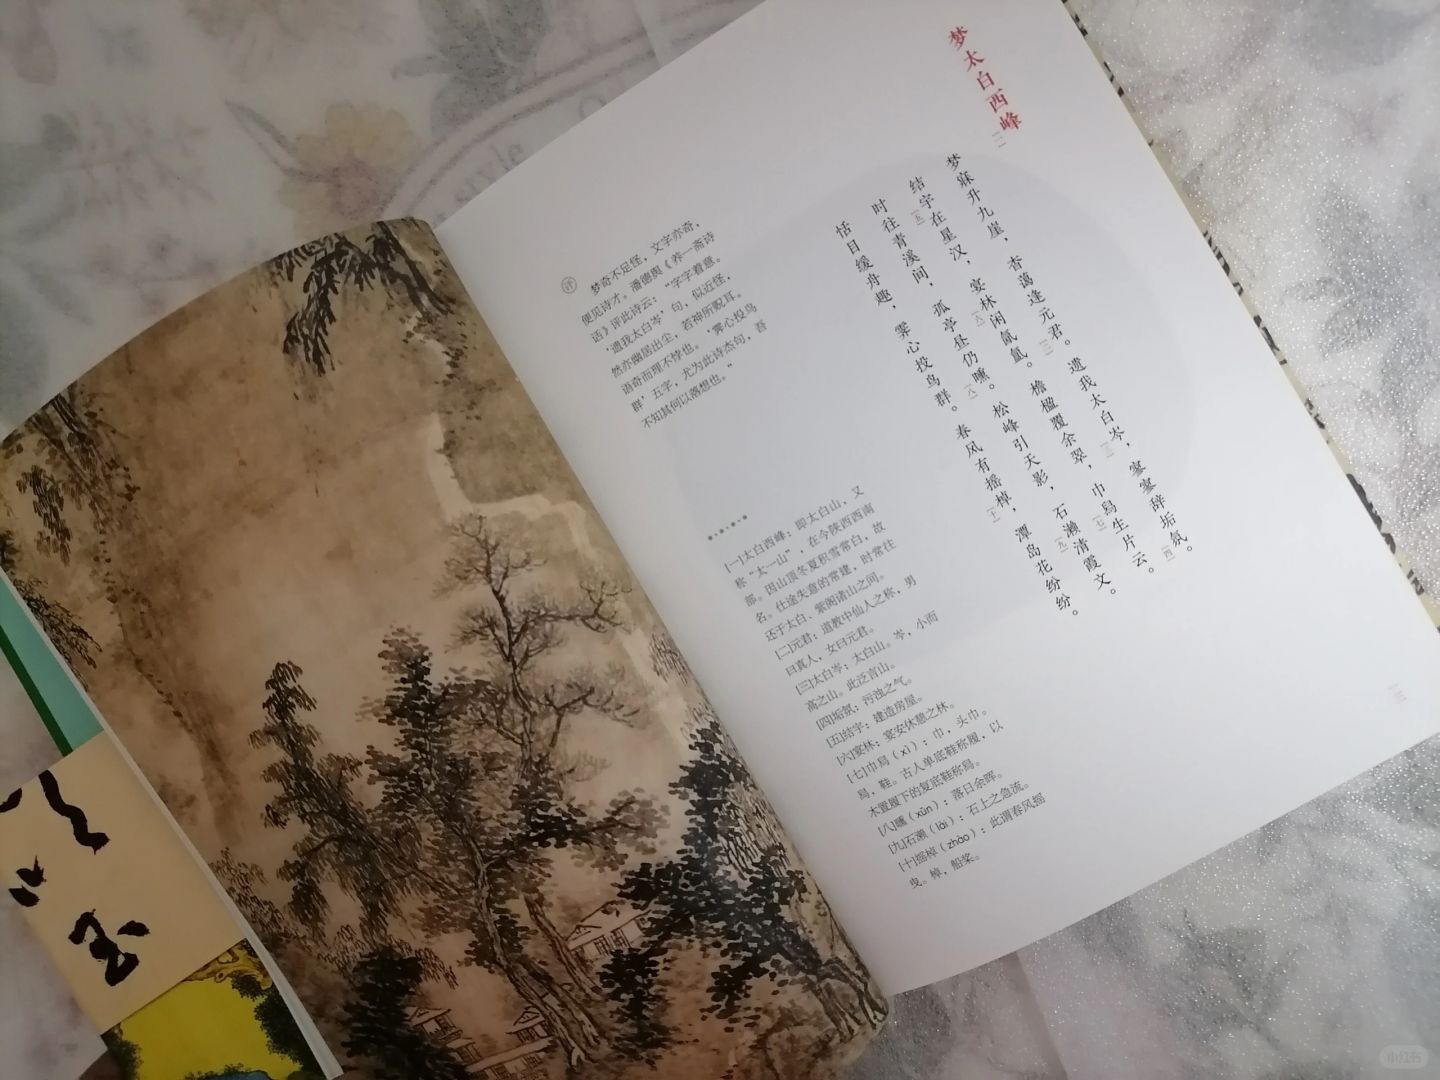 梦太白西峰[一]
梦寐升九崖，杳蔼逢元君。[二]遗我太白岑，[三]寥寥辞垢氛。[四]
结宇[五]在星汉，宴林[六]闲氤氲。檐楹覆余翠，巾舄[七]生片云。
时往青溪间，孤亭昼仍曛。[八]松峰引天影，石濑[九]清霞文。
恬目缓舟趣，霁心投鸟群。春风有摇棹，[十]潭岛花纷纷。
评
梦奇不足怪，文字亦奇，
便见诗才。潘德舆《养一斋诗
话》评此诗云：“字字着意。
‘遗我太白岑’句，似近怪，
然亦幽居出尘，若神所贶耳。
语奇而理不悖也。‘霁心投鸟
群’五字，尤为此诗杰句，吾
不知其何以落想也。”
[一]太白西峰：即太白山，又
称“太一山”，在今陕西西南
部。因山顶冬夏积雪常白，故
名。仕途失意的常建，时常往
还于太白、紫阁诸山之间。
[二]元君：道教中仙人之称，男
曰真人，女曰元君。
[三]太白岑：太白山。岑，小而
高之山。此泛言山。
[四]垢氛：污浊之气。
[五]结宇：建造房屋。
[六]宴林：宴安休憩之林。
[七]巾舄（xì）：巾，头巾。
舄，鞋。古人单底鞋称履，以
木置履下的复底鞋称舄。
[八]曛（xūn）：落日余晖。
[九]石濑（lài）：石上之急流。
[十]摇棹（zhào）：此谓春风摇
曳。棹，船桨。
小红书